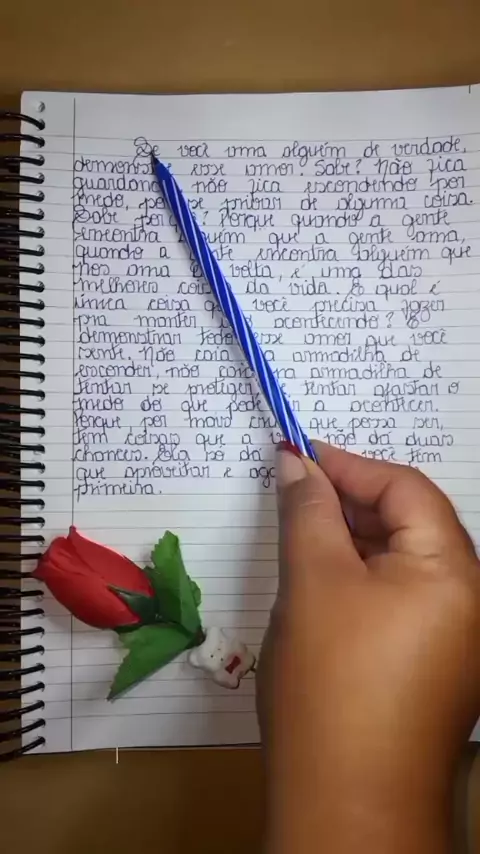 Se você uma alguém de verdade,
demonstre esse amor. Sabe? Não fica
guardando, não fica escondendo por
medo, por se privar de alguma coisa.
Sabe por ? Porque quando a gente
encontra alguém que a gente ama,
quando a gente encontra alguém que
nos ama de volta, é uma das
melhores coisas da vida. E qual é
única coisa que você precisa fazer
pra manter acontecendo? É
demonstrar todo esse amor que você
sente. Não caia na armadilha de
esconder, não caia na armadilha de
tentar se proteger e tentar afastar o
medo do que pode a acontecer.
Porque por mais que possa ser,
tem coisas que a não dá duas
chances. Ela só dá você tem
que aproveitar e
primeira.